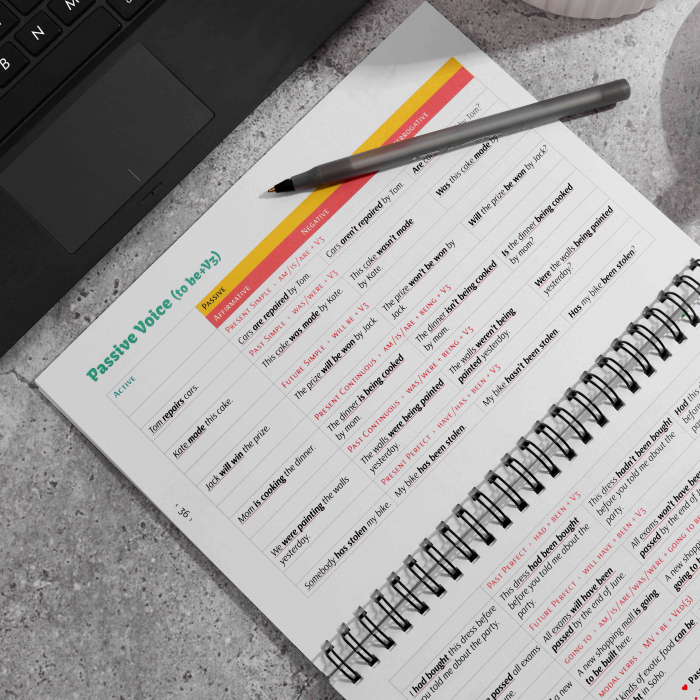 B
N
M
Passive Voice (to be+V3)
PASSIVE
ACTIVE
AFFIRMATIVE
NEGATIVE
PRESENT SIMPLE · AM/IS/ARE + V3
Tom repairs cars.
Cars are repaired by Tom.
Cars aren't repaired by Tom.
Are
by Tom?
PAST SIMPLE · WAS/WERE + V3
Kate made this cake.
This cake was made by Kate.
This cake wasn't made
by Kate.
Was this cake made by
FUTURE SIMPLE · WILL BE + V3
Jack will win the prize.
The prize will be won by Jack.
The prize won't be won by
Jack.
Will the prize be won by Jack?
PRESENT CONTINUOUS · AM/IS/ARE + BEING + V3
Mom is cooking the dinner.
The dinner is being cooked
by mom.
The dinner isn't being cooked
by mom.
Is the dinner being cooked
by mom?
PAST CONTINUOUS · WAS/WERE + BEING + V3
We were painting the walls
yesterday.
The walls were being painted
yesterday.
The walls weren't being
painted yesterday.
Were the walls being painted
yesterday?
PRESENT PERFECT · HAVE/HAS + BEEN + V3
Somebody has stolen my bike.
My bike has been stolen
My bike hasn't been stolen
Has my bike been stolen?
36
PAST PERFECT · HAD + BEEN + V3
I had bought this dress before
you told me about the party.
This dress had been bought
before you told me about the
party.
This dress hadn't been bought
before you told me about the
party.
Had this
before
party?
FUTURE PERFECT · WILL HAVE + BEEN + V3
passed all exams
All exams will have been
passed by the end of June.
All exams won't have been
passed by the end of
GOING TO · AM/IS/ARE/WAS/WERE + GOING TO BE
a new
A new shopping mall is going
to be built here.
A new shop
going to
MODAL VERBS · MV + BE + V3(D3)
kinds of exotic food can be
Soho.